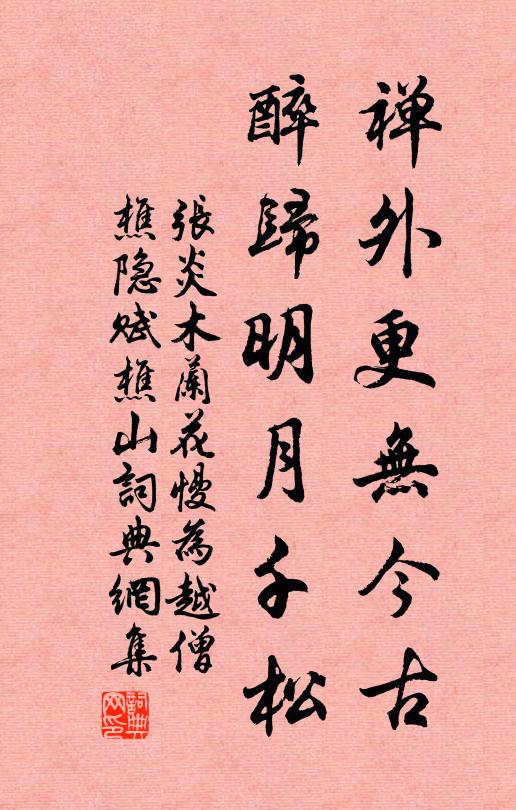 禅外更無今古
醉歸明月千松
張炎木蘭花慢為越僧
樵隐賦樵山詞典網集
詞典
网印